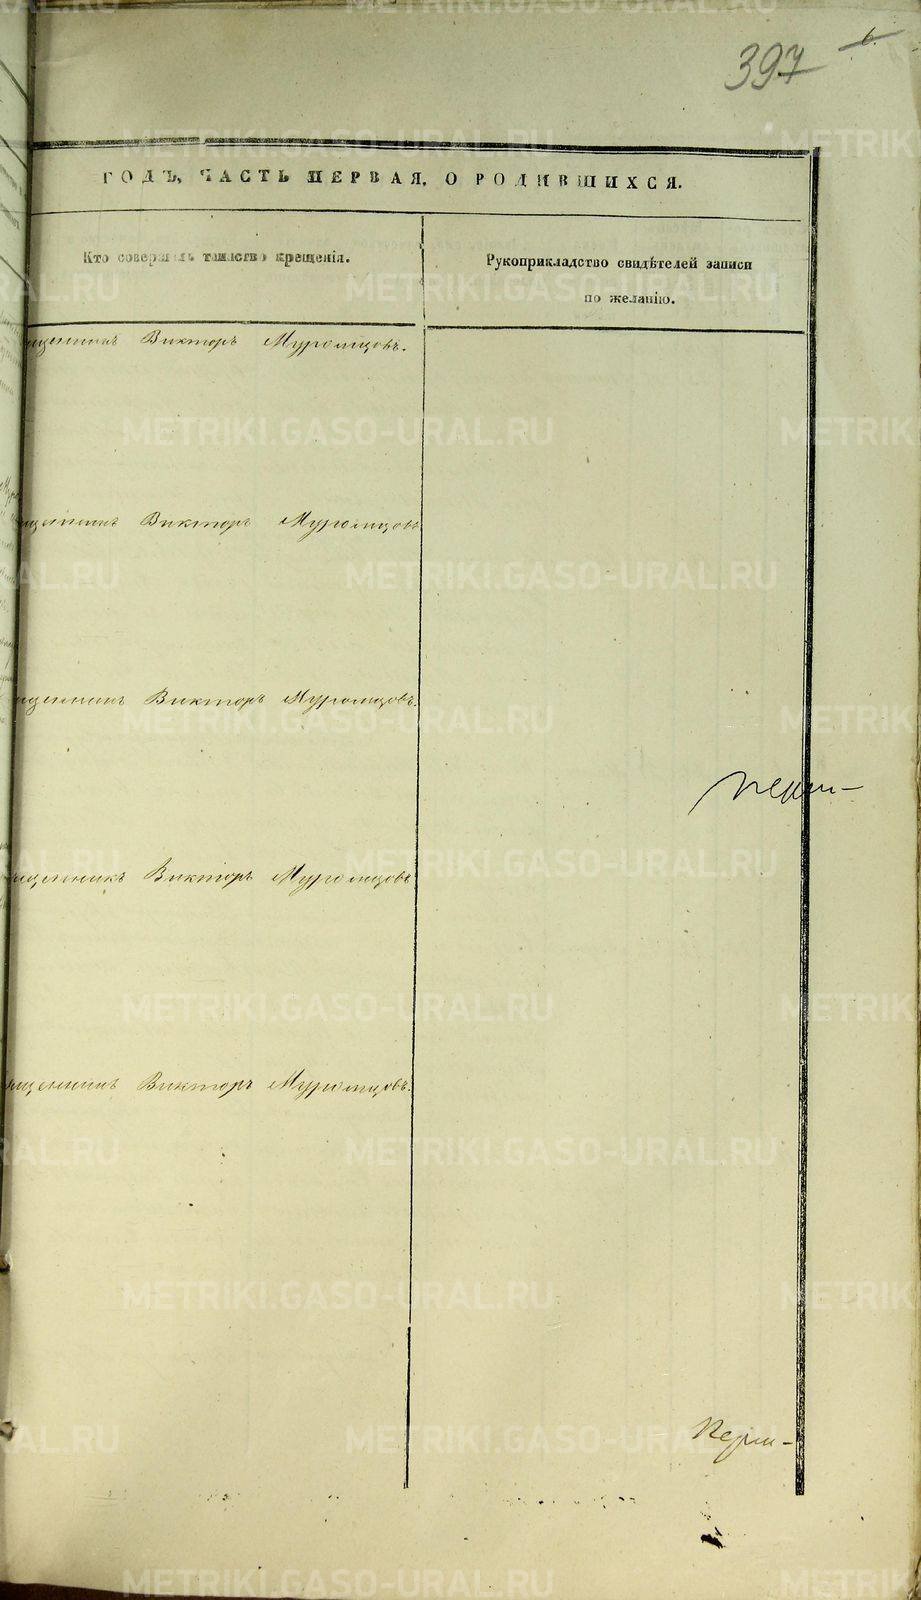 6.
397
ГОДЪ, ЧАСТЬ ПЕРВАЯ, О РОДИВШИХСЯ.
Кто совершалъ таинство крещенія.
Рукоприкладство свидѣтелей записи
по желанію.
щенникъ Викторъ Муромцовъ.
щенникъ Викторъ Муромцовъ
щенникъ Викторъ Муромцовъ.
щенникъ Викторъ Муромцовъ
щенникъ Викторъ Муромцовъ.
METRIKI.GASO-URAL.RU